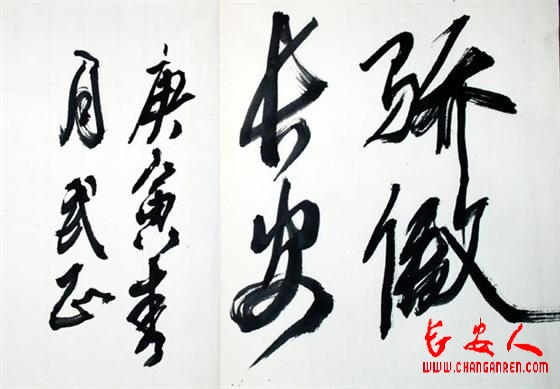 骄傲
长安
庚寅春
月武正
长安人
WWW.CHANGANREN.COM